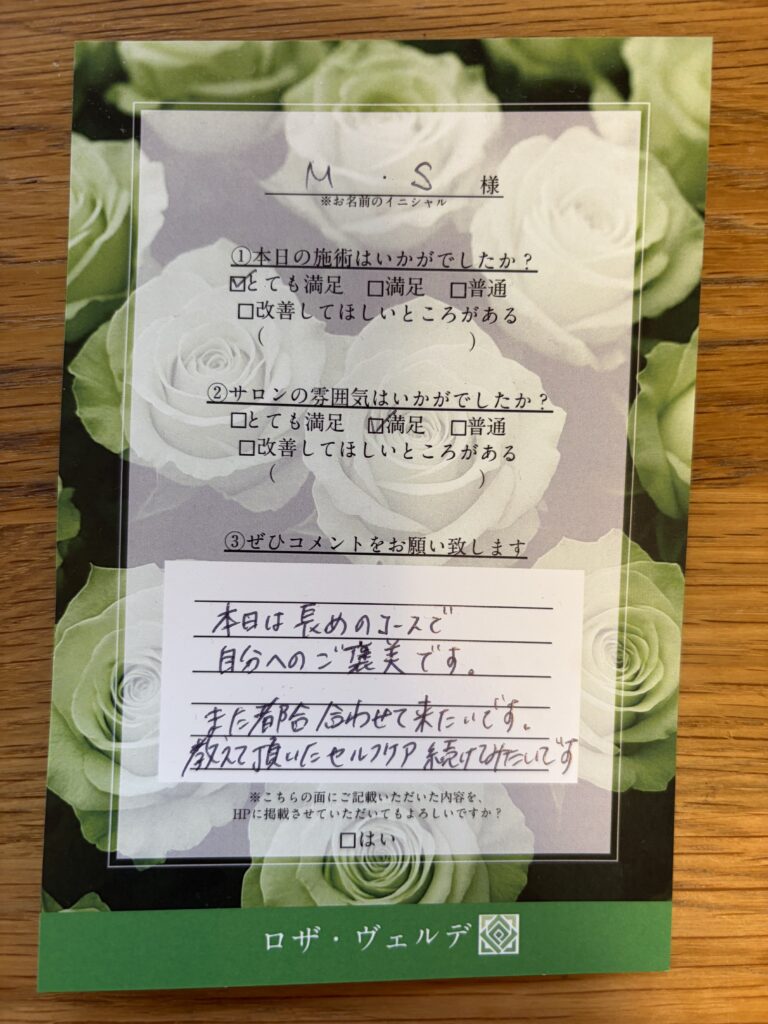 M ・ S 様
※お名前のイニシャル
①本日の施術はいかがでしたか？
☑とても満足 □満足 □普通
□改善してほしいところがある
( )
②サロンの雰囲気はいかがでしたか？
□とても満足 ☑満足 □普通
□改善してほしいところがある
( )
③ぜひコメントをお願い致します
本日は長めのコースで
自分へのご褒美です。
また都合合わせて来たいです。
教えて頂いたセルフケア続けてみたいです
※こちらの面にご記載いただいた内容を、
HPに掲載させていただいてもよろしいですか？
□はい
ロザ・ヴェルデ